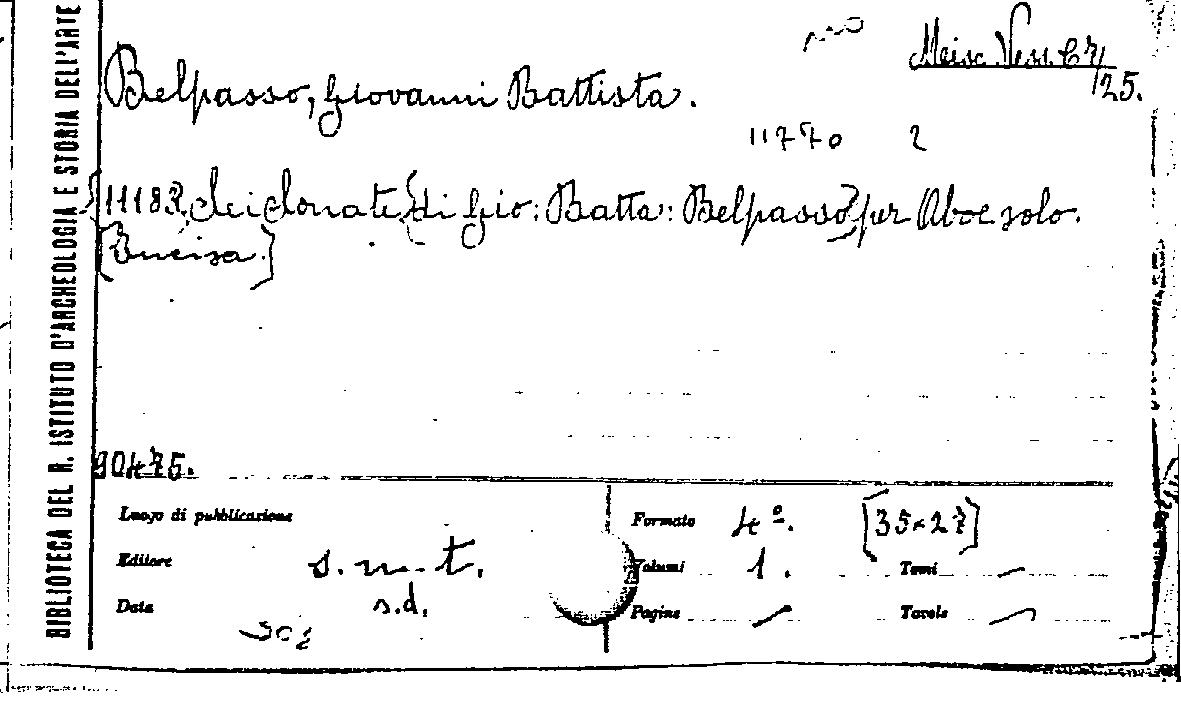 BIBLIOTECA DEL R. ISTITUTO D'ARCHEOLOGIA E STORIA DELL'ARTE
Misc. Vess. 67/25.
Belpasso, Giovanni Battista.
11770 2
11183. Sei Sonate [di Gio: Batta: Belpasso] per Oboe solo.
[Incisa.]
90475.
Luogo di pubblicazione
Editore s.n.t.
Data s.d.
Formato 4º. [35×27]
Volumi 1. Tomi –
Pagine – Tavole –